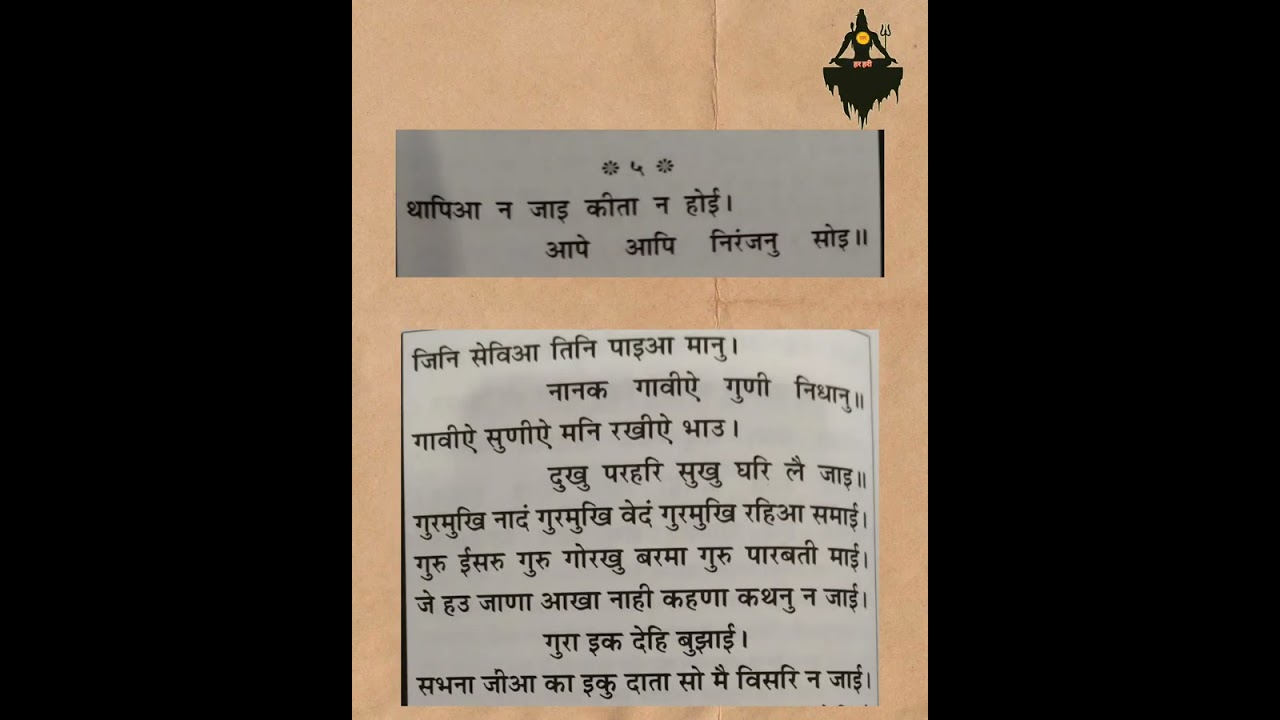 हर हरी
❊ ५ ❊
थापिआ न जाइ कीता न होई।
आपे आपि निरंजनु सोइ॥
जिनि सेविआ तिनि पाइआ मानु।
नानक गावीऐ गुणी निधानु॥
गावीऐ सुणीऐ मनि रखीऐ भाउ।
दुखु परहरि सुखु घरि लै जाइ॥
गुरमुखि नादं गुरमुखि वेदं गुरमुखि रहिआ समाई।
गुरु ईसरु गुरु गोरखु बरमा गुरु पारबती माई।
जे हउ जाणा आखा नाही कहणा कथनु न जाई।
गुरा इक देहि बुझाई।
सभना जीआ का इकु दाता सो मै विसरि न जाई।